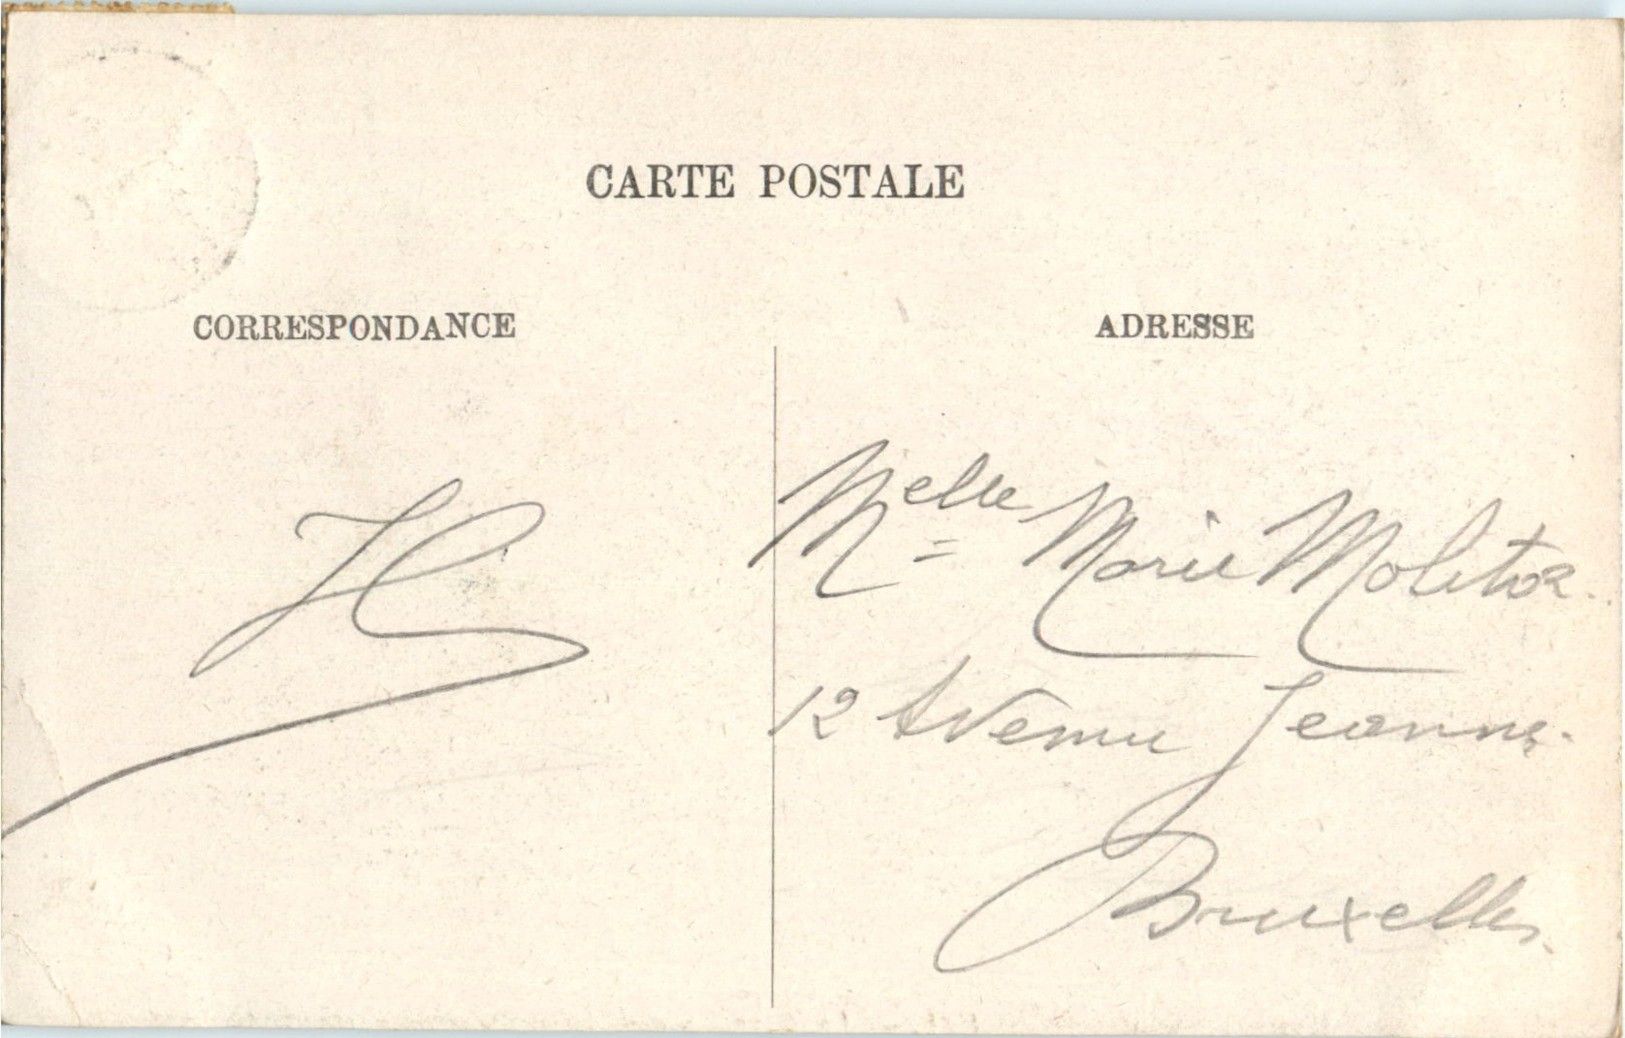 CARTE POSTALE
CORRESPONDANCE
ADRESSE
Melle Marie Molitor.
12 Avenue Jeanne.
Bruxelles.